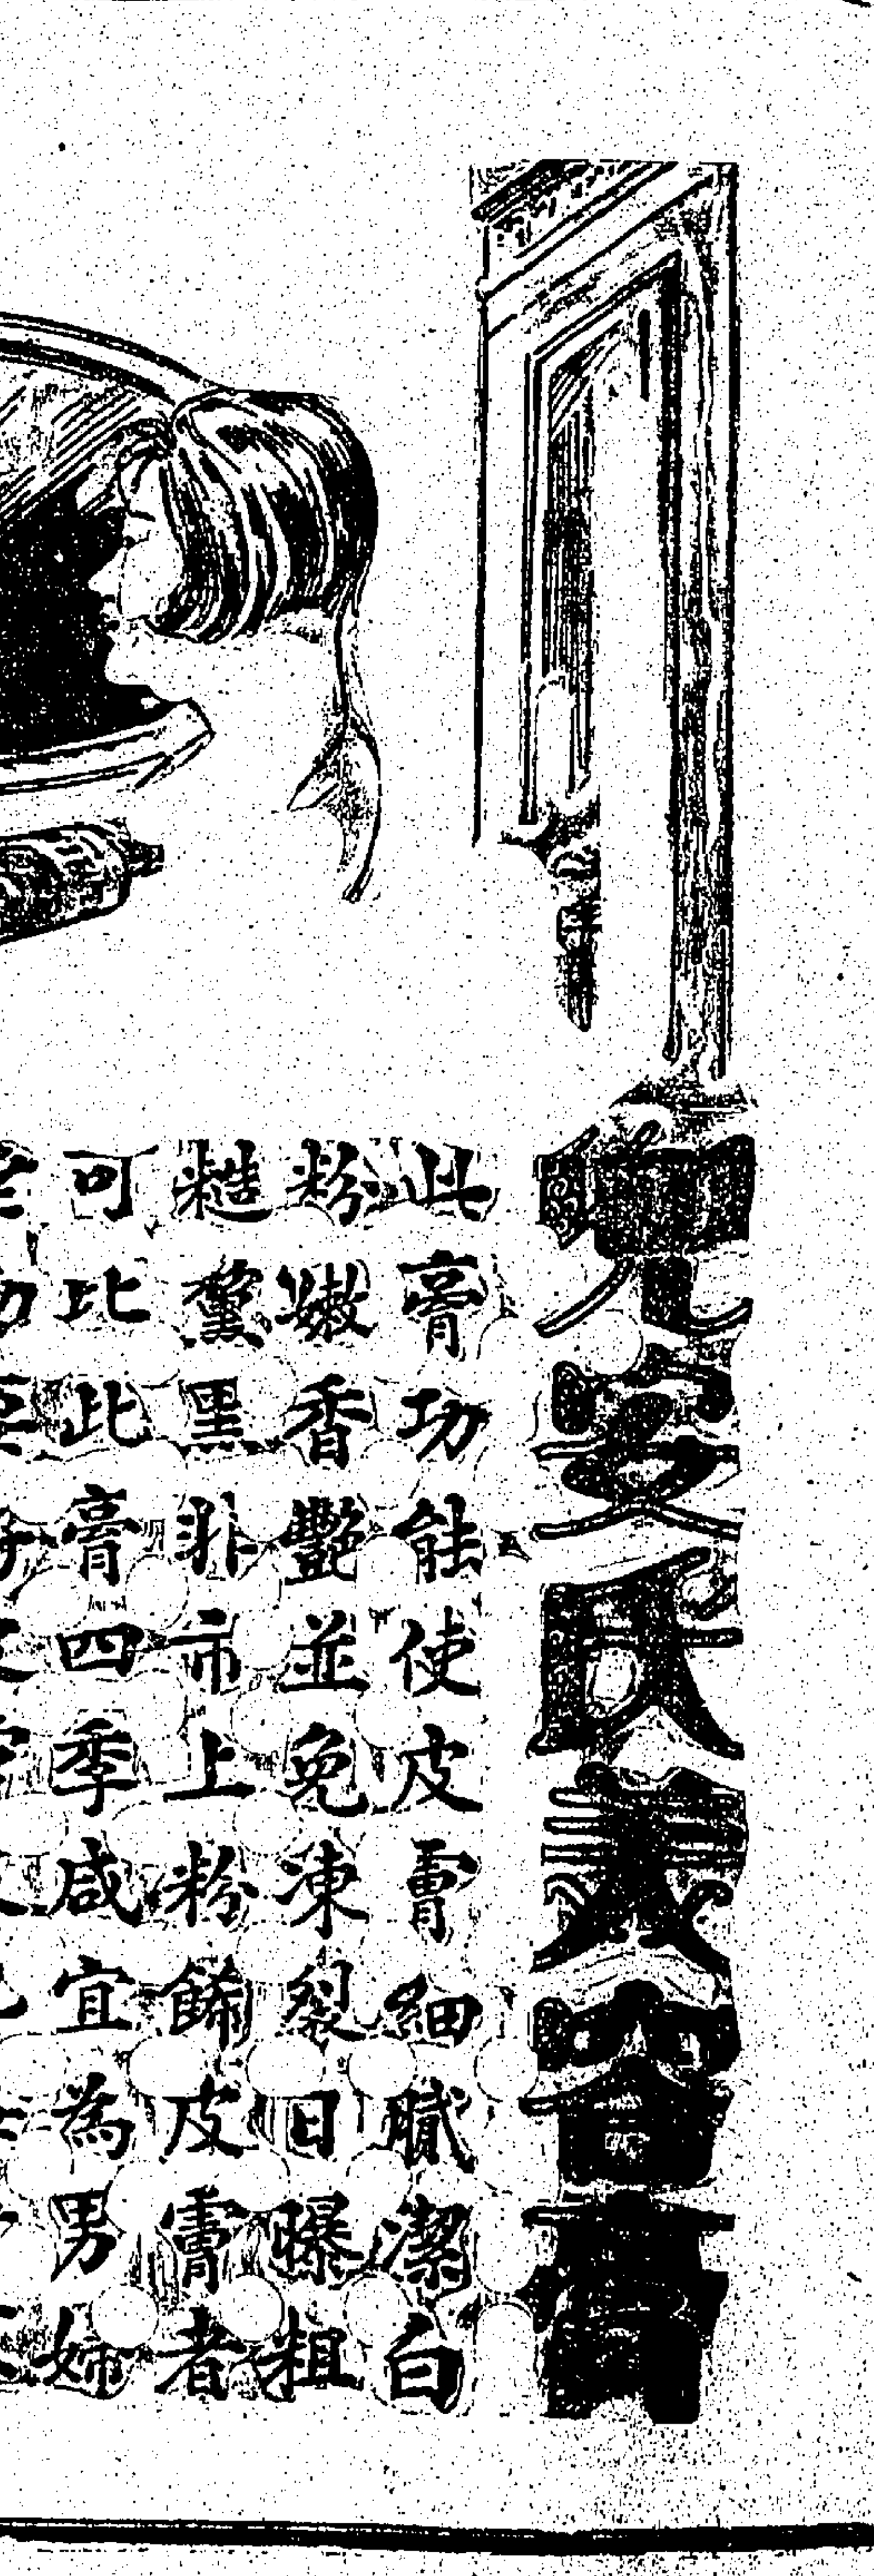 兜安氏美容膏
此膏功能使皮膚細膩潔白
粉嫩香豔並免凍裂日曝粗
糙黧黑非市上粉飾皮膚者
可比此膏四季咸宜為男婦